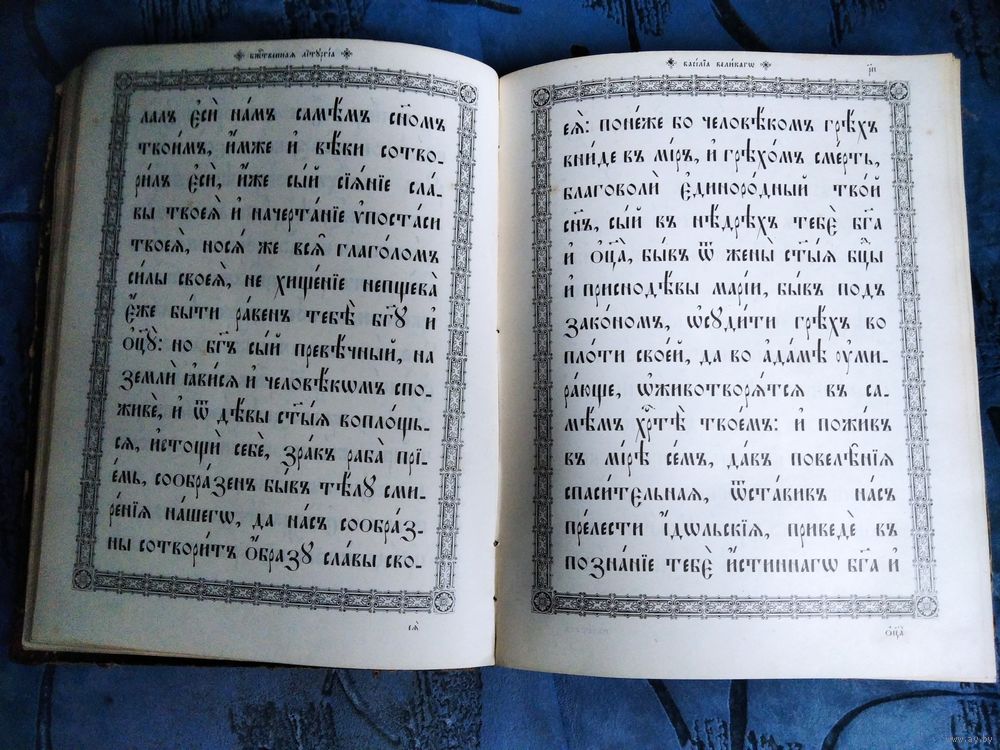 бж҃ственнаѧ лїтꙋргі́а
лалъ є҆сѝ на́мъ самѣ́мъ сн҃омъ
твои́мъ, и҆́мже и҆ вѣ́ки сотво-
ри́лъ є҆сѝ, и҆́же сы́й сїѧ́нїе сла́-
вы твоеѧ̀ и҆ начерта́нїе ѵ҆поста́си
твоеѧ̀, носѧ́ же всѧ̑ глаго́ломъ
си́лы своеѧ̀, не хище́нїе непщева̀
є҆́же бы́ти ра́венъ тебѣ̀ бг҃ꙋ и҆
ѻ҆ц҃ꙋ̀: но бг҃ъ сы́й превѣ́чный, на
землѝ ꙗ҆ви́сѧ и҆ человѣ́кѡмъ спо-
живѐ, и҆ ѿ дѣ́вы ст҃ы́ѧ вопло́щь-
сѧ, и҆стощѝ себѐ, зра́къ раба̀ прїи-
е́мь, соѻбра́зенъ бы́въ тѣ́лꙋ сми-
ре́нїѧ на́шегѡ, да на́съ соѻбра́з-
ны сотвори́тъ ѻ҆́бразꙋ сла́вы сво-
еѧ̀
васі́лїа вели́кагѡ
рп
еѧ̀: поне́же бо человѣ́комъ грѣ́хъ
вни́де въ мі́ръ, и҆ грѣхо́мъ сме́рть,
благоволѝ є҆диноро́дный тво́й
сн҃ъ, сы́й въ нѣ́дрѣхъ тебѐ бг҃а
и҆ ѻ҆ц҃а̀, бы́въ ѿ жены̀ ст҃ы́ѧ бц҃ы
и҆ приснодѣ́вы марі́и, бы́въ под̾
зако́номъ, ѡ҆сꙋди́ти грѣ́хъ во
пло́ти свое́й, да во а҆да́мѣ ѹ҆ми-
ра́юще, ѡ҆животворѧ́тсѧ въ са-
мѣ́мъ хр҃тѣ̀ твое́мъ: и҆ пожи́въ
въ мі́рѣ се́мъ, да́въ повелѣ̑нїѧ
спаси́тельнаѧ, ѿста́вивъ на́съ
пре́лести і҆́дѡльскїѧ, приведѐ въ
позна́нїе тебѐ и҆́стиннагѡ бг҃а и҆
ѻ҆ц҃а̀
www.ay.by